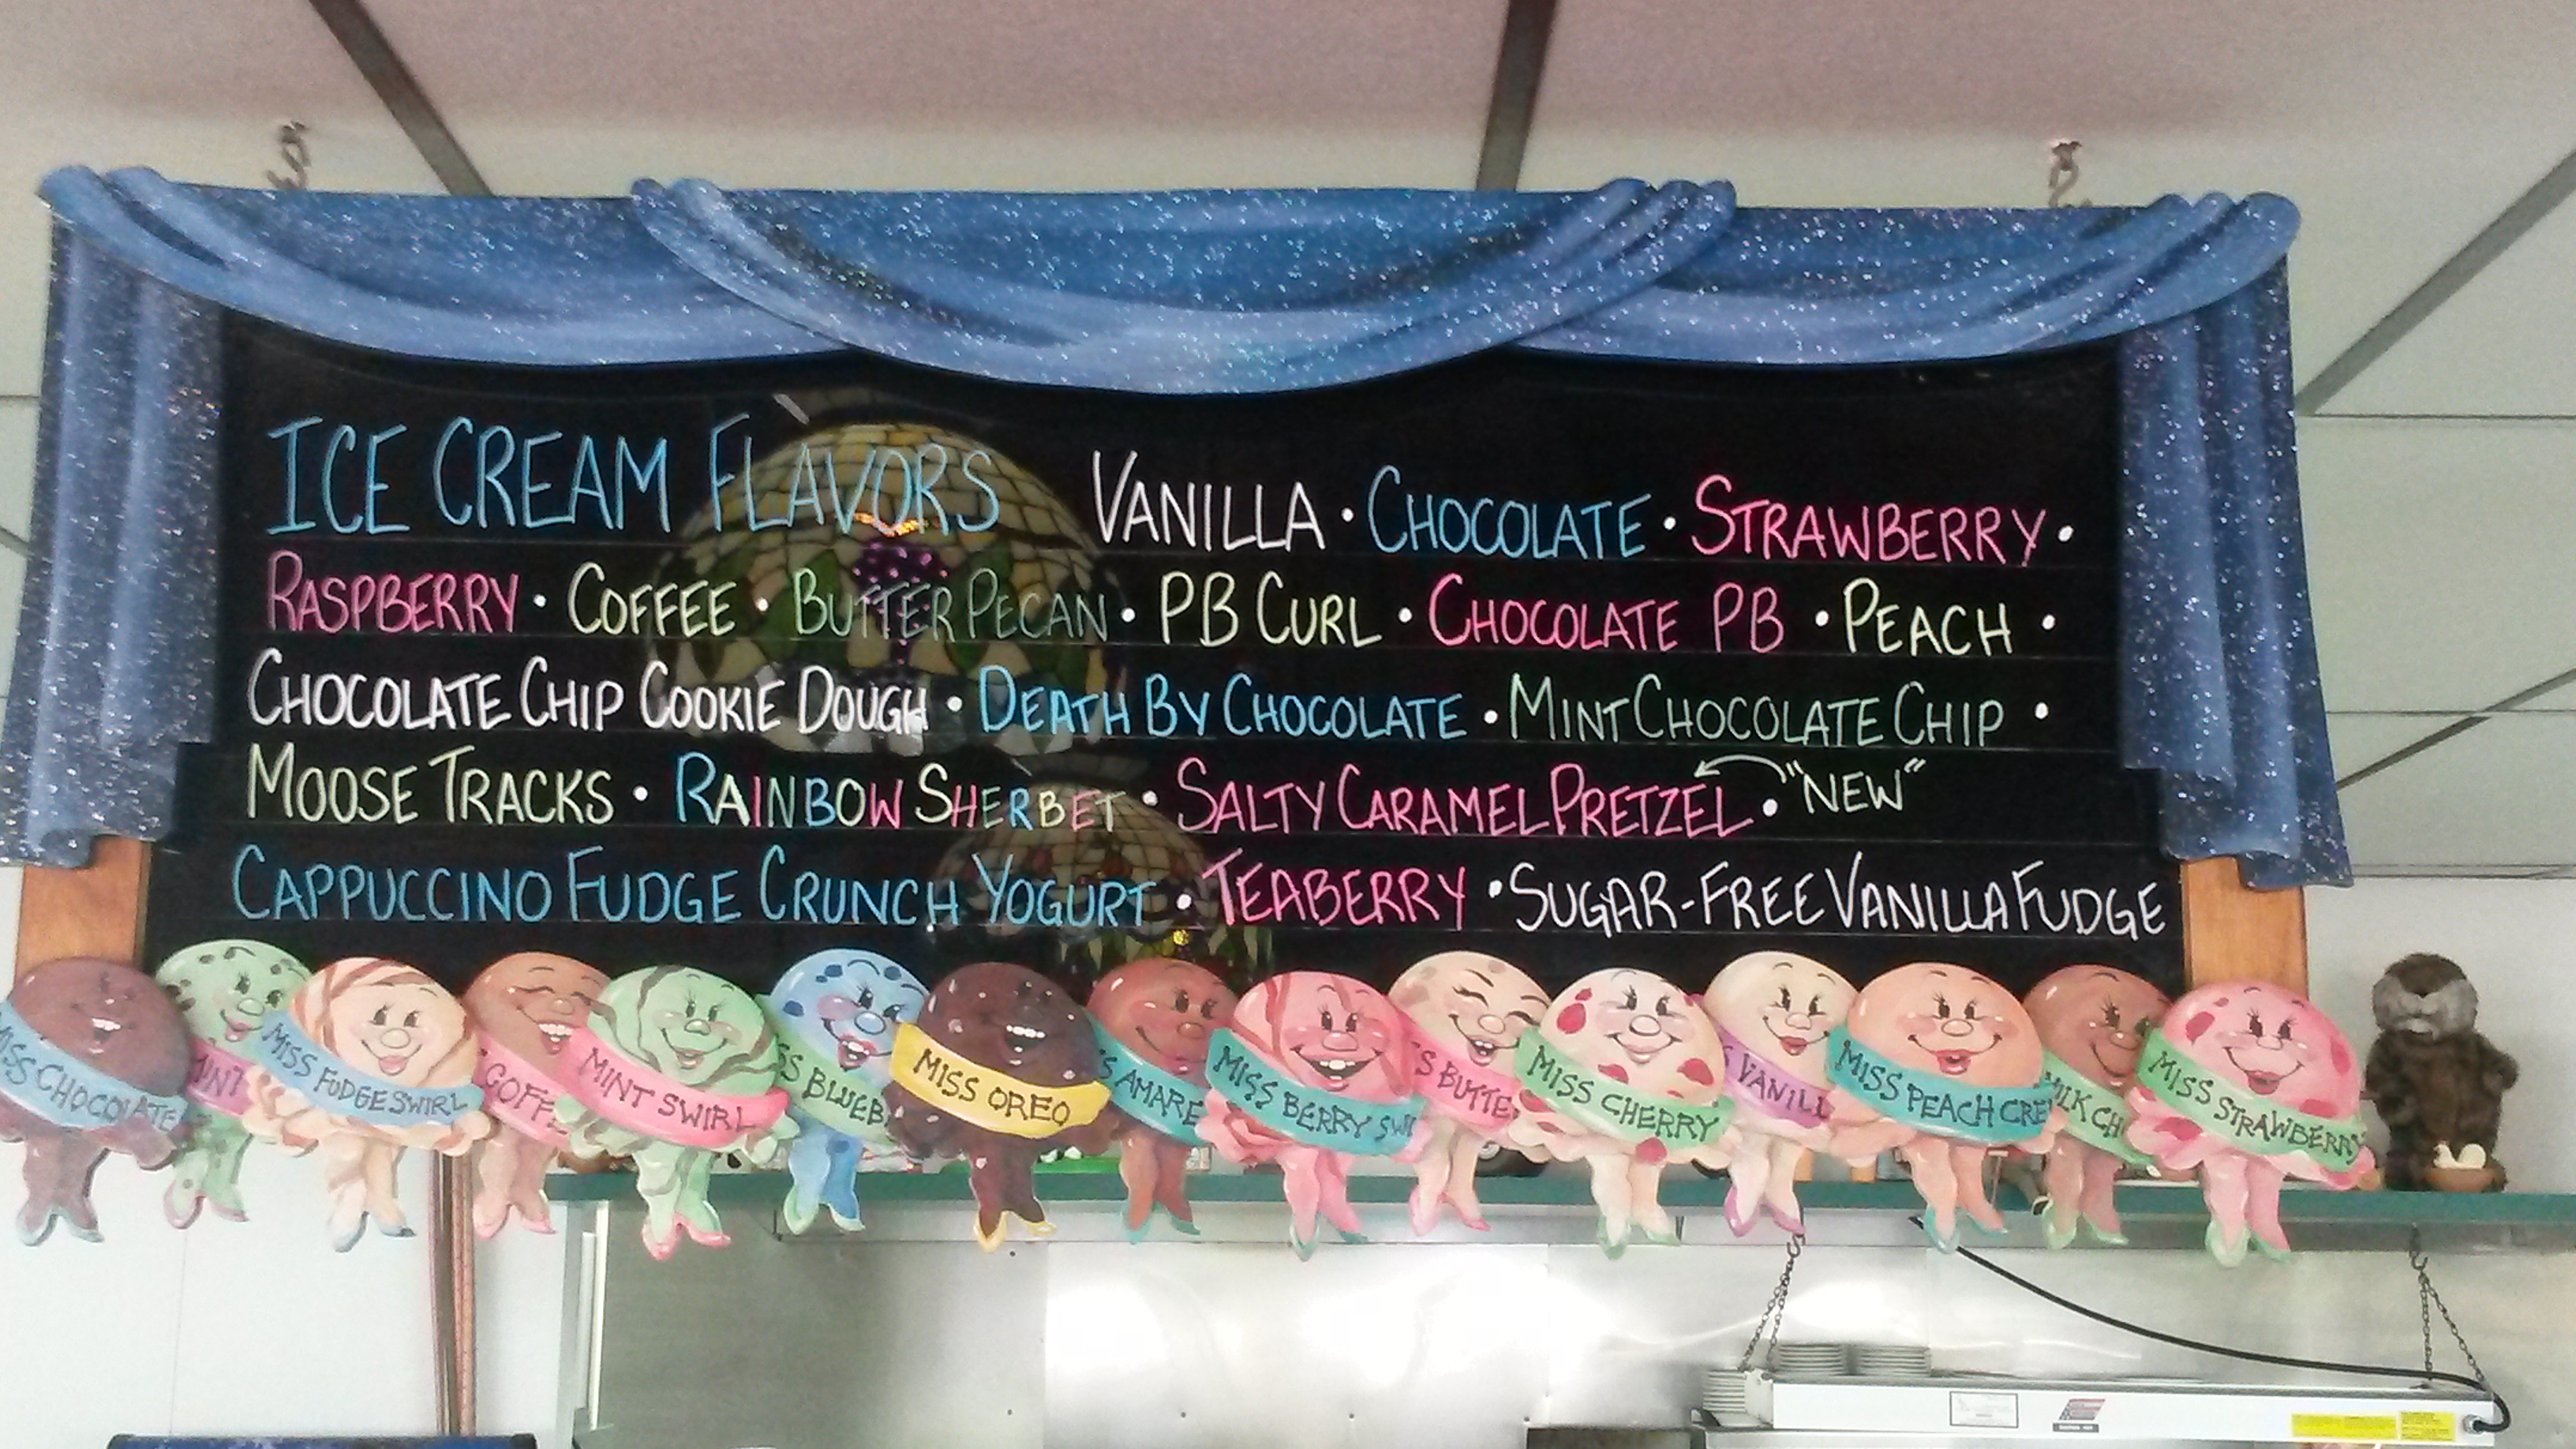 ICE CREAM FLAVORS VANILLA · CHOCOLATE · STRAWBERRY ·
RASPBERRY · COFFEE · BUTTER PECAN · PB CURL · CHOCOLATE PB · PEACH ·
CHOCOLATE CHIP COOKIE DOUGH · DEATH BY CHOCOLATE · MINT CHOCOLATE CHIP ·
MOOSE TRACKS · RAINBOW SHERBET · SALTY CARAMEL PRETZEL · "NEW"
CAPPUCCINO FUDGE CRUNCH YOGURT · TEABERRY · SUGAR-FREE VANILLA FUDGE
MISS CHOCOLATE
MINT
MISS FUDGE SWIRL
COFFE
MINT SWIRL
S BLUEB
MISS OREO
S AMARE
MISS BERRY SWI
S BUTTE
MISS CHERRY
S VANILL
MISS PEACH CRE
MILK CH
MISS STRAWBERRY